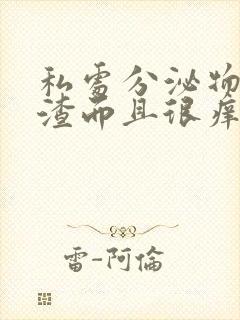 私处分泌物
渣而且很痒
雷-阿倫